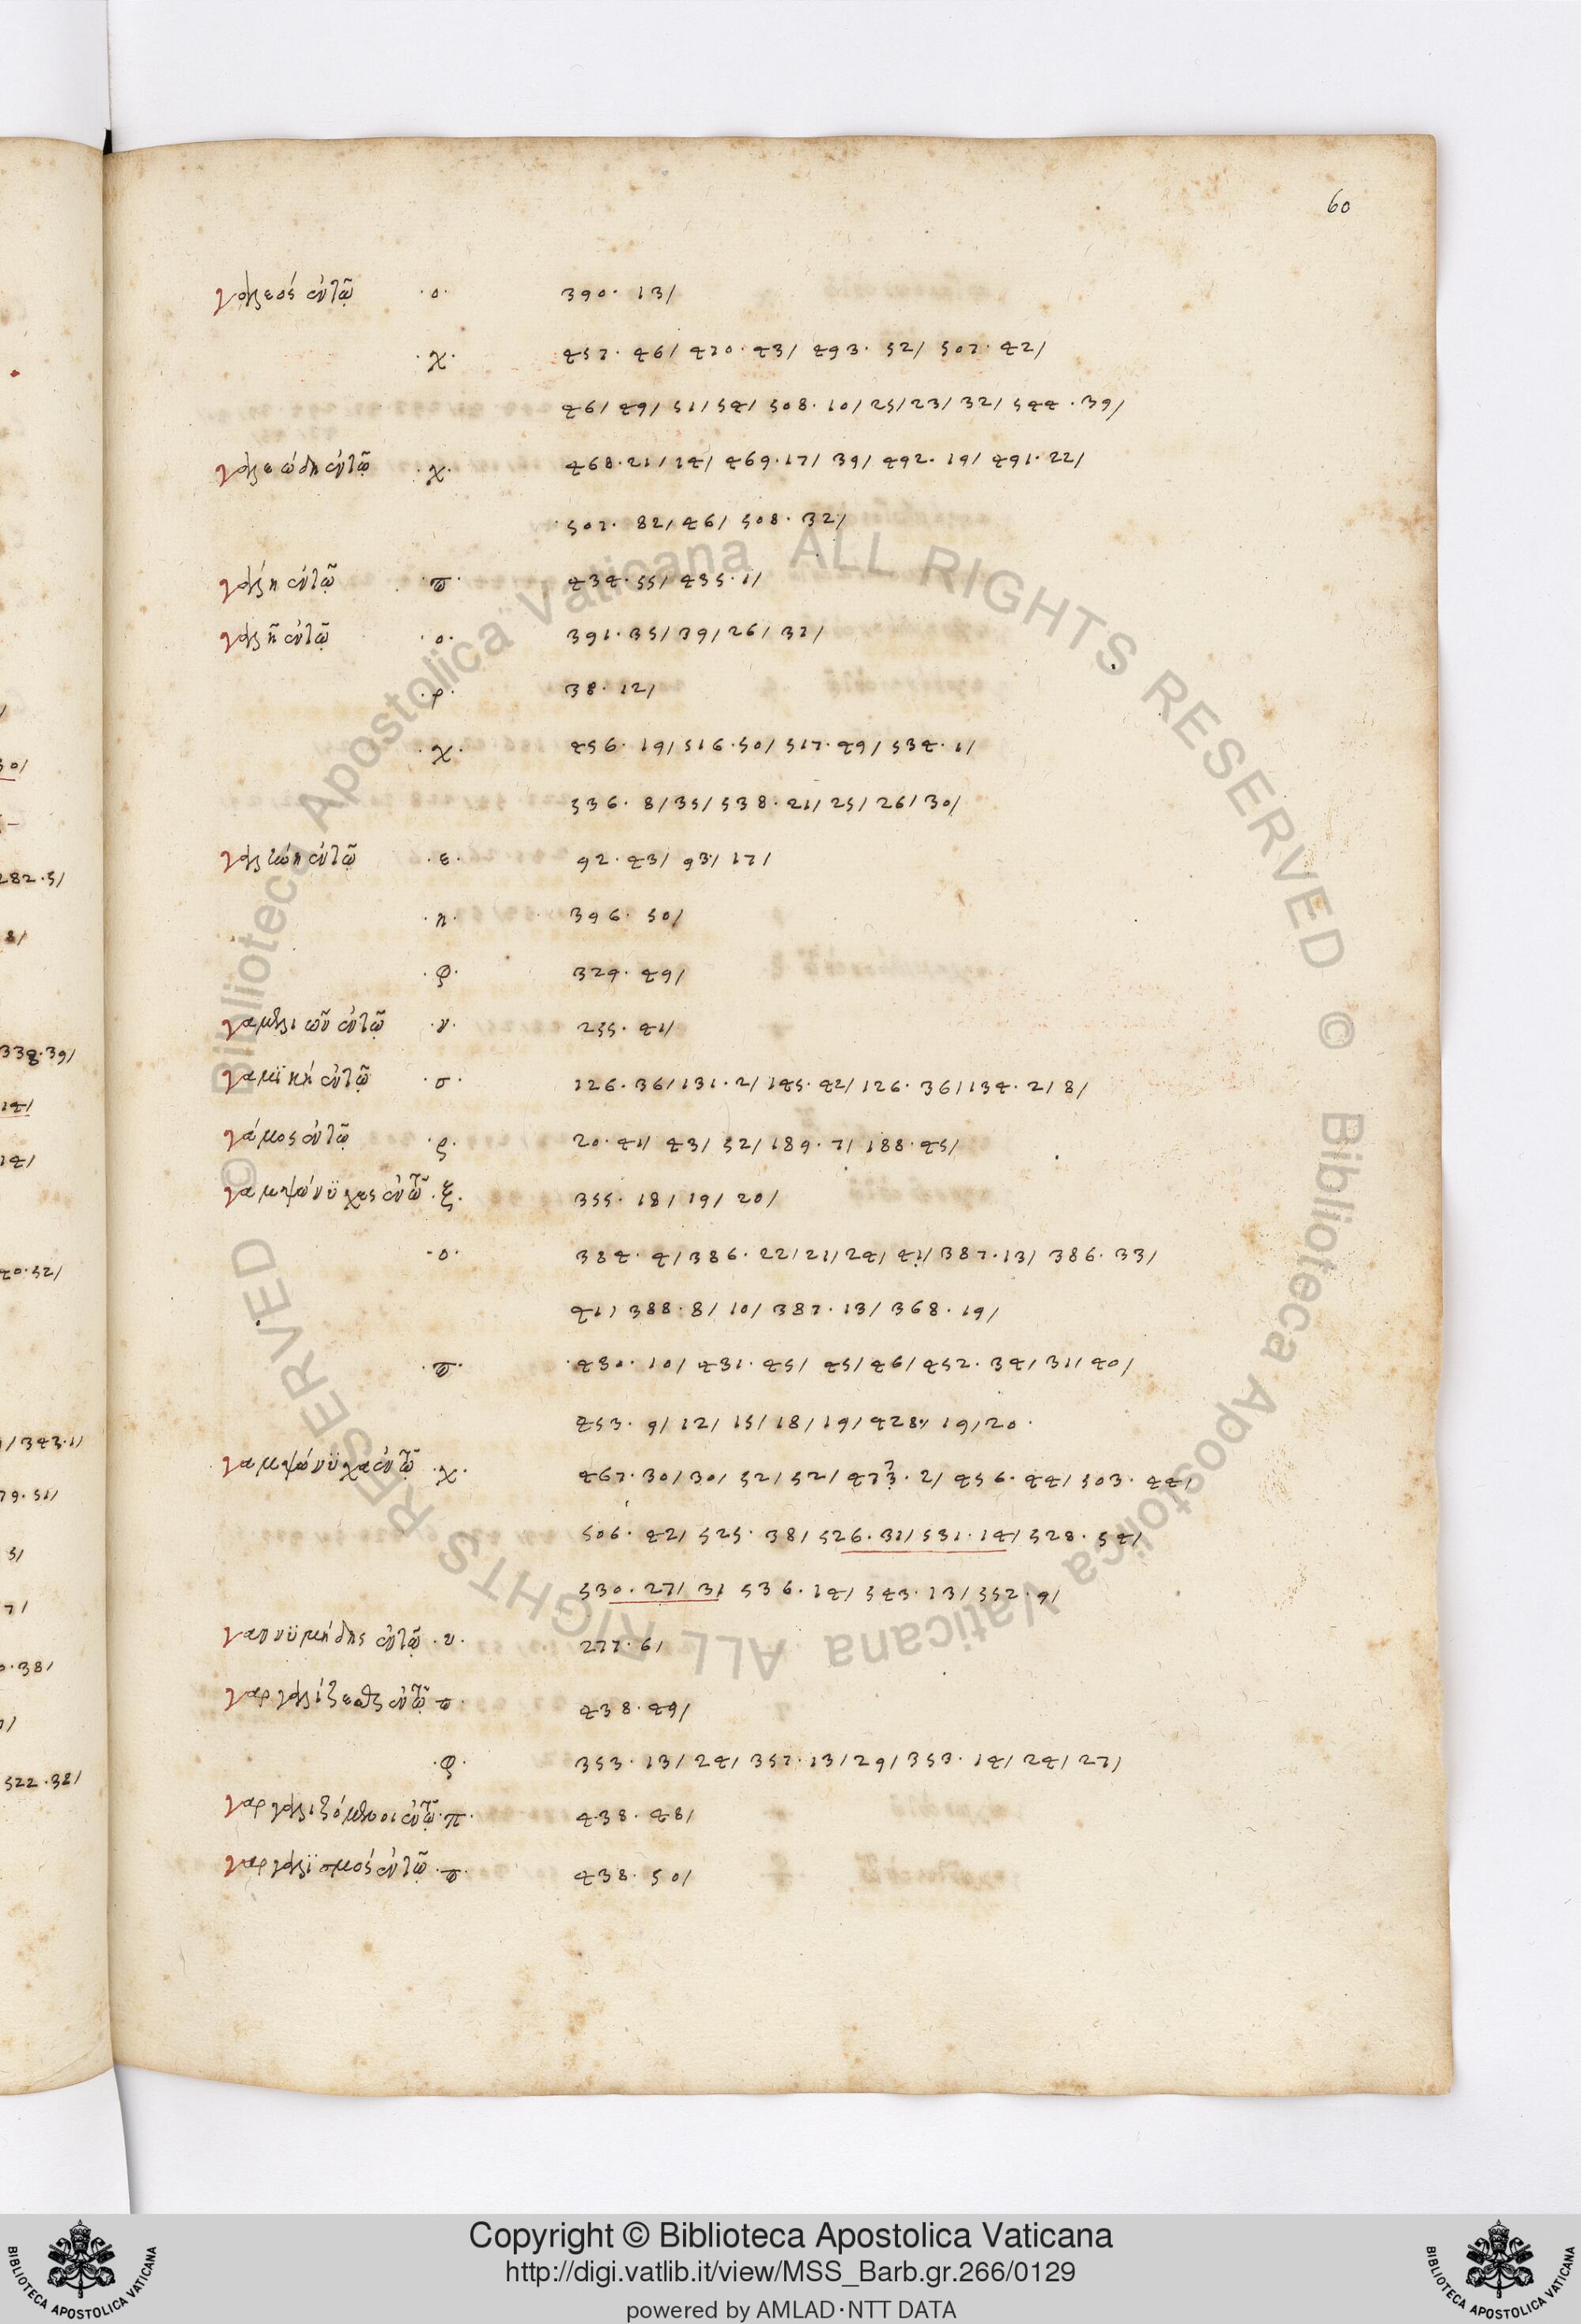 60
γαλεός ἐν τῷ ·ο· 390· 13/
·χ· 457· 46/ 470· 43/ 493· 52/ 507· 42/
46/ 49/ 51/ 54/ 508· 10/ 25/ 23/ 32/ 544· 39/
γαλεώδη ἐν τῷ ·χ· 468· 21/ 24/ 469· 17/ 39/ 492· 19/ 491· 22/
507· 82/ 46/ 508· 32/
γαλῆ ἐν τῷ ·π· 434· 55/ 435· 1/
γαλῆ ἐν τῷ ·ο· 391· 35/ 39/ 26/ 37/
·ρ· 38· 12/
·χ· 456· 19/ 516· 50/ 517· 49/ 534· 1/
536· 8/ 35/ 538· 21/ 25/ 26/ 30/
ἐν τῷ ·ε· 92· 43/ 93/ 17/
·η· 396· 50/
·φ· 329· 49/
ἐν τῷ ·ν· 255· 41/
γαμϊκή ἐν τῷ ·σ· 126· 36/ 131· 2/ 145· 42/ 126· 36/ 134· 2/ 8/
γάμος ἐν τῷ ·ς· 20· 41/ 43/ 52/ 189· 7/ 188· 45/
γαμψώνϋχες ἐν τῷ ·ξ· 355· 18/ 19/ 20/
·ο· 384· 4/ 386· 22/ 21/ 24/ 41/ 387· 13/ 386· 33/
41/ 388· 8/ 10/ 387· 13/ 368· 19/
·π· 430· 10/ 431· 45/ 45/ 46/ 452· 34/ 31/ 40/
453· 9/ 12/ 15/ 18/ 19/ 428/ 19/ 20·
γαμψώνϋχα ἐν τῷ ·χ· 467· 30/ 30/ 52/ 52/ 473· 2/ 456· 44/ 503· 44/
506· 42/ 525· 38/ 526· 31/ 531· 14/ 528· 54/
530· 27/ 31 536· 14/ 543· 13/ 552· 9/
γαννϋμήδης ἐν τῷ ·ν· 277· 6/
γαργαλίζεσθαι ἐν τῷ π· 438· 49/
·φ· 353· 13/ 24/ 357· 13/ 29/ 353· 14/ 24/ 27/
γαργαλιζόμενοι ἐν τῷ ·π· 438· 48/
γαργαλϊσμός ἐν τῷ ·π· 438· 50/
Copyright © Biblioteca Apostolica Vaticana
http://digi.vatlib.it/view/MSS_Barb.gr.266/0129
powered by AMLAD·NTT DATA
BIBLIOTECA APOSTOLICA VATICANA
BIBLIOTECA APOSTOLICA VATICANA
© Biblioteca Apostolica Vaticana ALL RIGHTS RESERVED
© Biblioteca Apostolica Vaticana ALL RIGHTS RESERVED